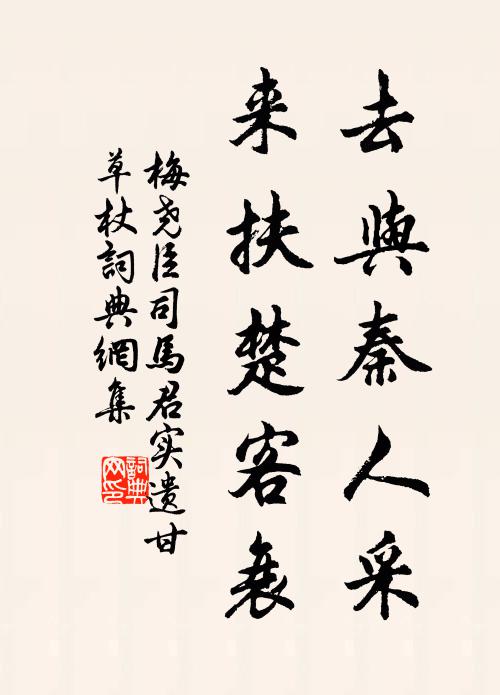 去與秦人采
来扶楚客衰
梅尧臣司馬君实遺甘
草杖詞典網集
詞典
网印